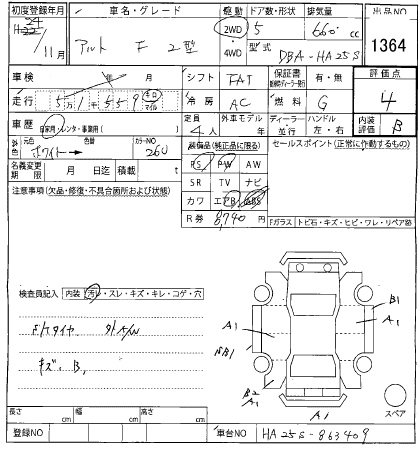 初度登録年月
24
H22
11月
車名・グレード
アルト F 2型
駆動
2WD
4WD
ドア数・形状
5
排気量
660 cc
型式
DBA-HA25S
出品NO
1364
車検 年 月
シフト FAT
保証書 有・無
評価点
4
走行 5万1千559 キロ マイル
冷房 AC
燃料 G
車歴 自家用・レンタ・事業用( )
定員 4人
外車モデル 年
ディーラー 並行
ハンドル 左・右
内装評価 B
外色 元色 ホワイト→ 色替 カラーNO 26U
装備品(純正品に限る)
PS PW AW
SR TV ナビ
カワ エアB ABS
セールスポイント(正常に作動するもの)
名義変更期限 月 日迄 積載 t
R券 8,740円
注意事項(欠品・修復・不具合箇所および状態)
Fガラス トビ石・キズ・ヒビ・ワレ・リペア跡
検査員記入 内装 汚レ・スレ・キズ・キレ・コゲ・穴
キズ、B1
A1
B1
A1
B2
A1
A1
スペア
長さ cm 幅 cm 高さ cm
登録NO
車台NO HA25S-863409